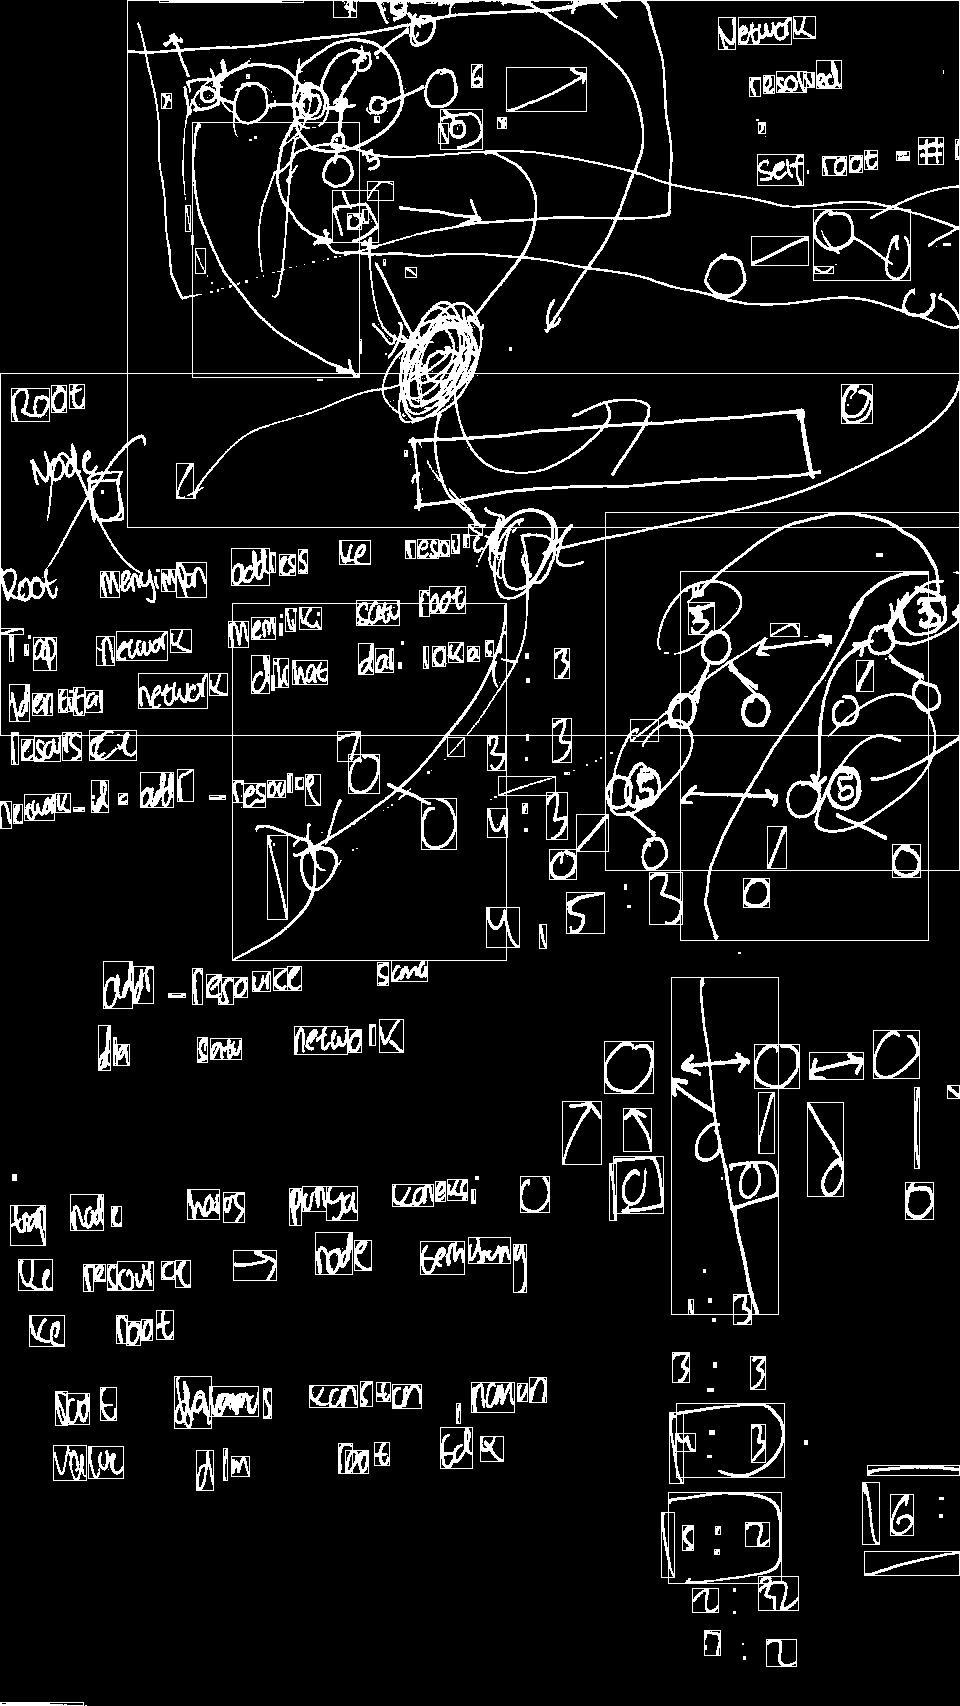 Network
resolved
self. root = #
6
Root
Node
Root menyimpan address ke resource
Tiap network memiliki satu root
Identitas network dilihat dari lokasi
resource
network_id = addr_resource
: 3
3 : 3
4 : 3
4, 5 : 3
3
3
5
5
addr_resource sama
dlm satu network
tiap node harus punya koneksi
ke resource → node terhubung
ke root
root harus konstan, namun
value dlm root tdk
1 : 3
3 : 3
4 : 3
5 : 2
6 :
2 : 32
7 : 2